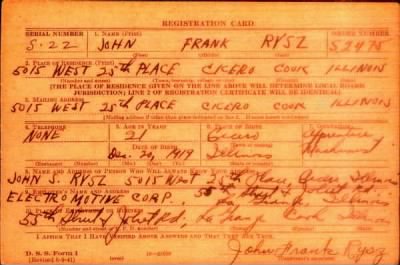 REGISTRATION CARD
SERIAL NUMBER 1. NAME (Print) ORDER NUMBER
S-22 JOHN FRANK RYSZ S2475
(First) (Middle) (Last)
2. PLACE OF RESIDENCE (Print)
5015 WEST 25th PLACE CICERO COOK ILLINOIS
(Number and street) (County) (State)
[THE PLACE OF RESIDENCE GIVEN ON THE LINE ABOVE WILL DETERMINE LOCAL BOARD
JURISDICTION; LINE 2 OF REGISTRATION CERTIFICATE WILL BE IDENTICAL]
3. MAILING ADDRESS
5015 WEST 25th PLACE CICERO COOK ILLINOIS
[Mailing address if other than place indicated on line 2. If same insert word same]
4. TELEPHONE 5. AGE IN YEARS 6. PLACE OF BIRTH
NONE 21 Cicero Apprentice
DATE OF BIRTH
Dec. 20, 1919 Illinois Machinist
7. NAME AND ADDRESS OF PERSON WHO WILL ALWAYS KNOW YOUR ADDRESS
JOHN S. RYSZ 5015 WEST 25th Place, Cicero Illinois
8. EMPLOYER'S NAME AND ADDRESS
ELECTRO MOTIVE CORP. 55th Street & Joliet Rd. La Grange, Illinois
9. PLACE OF EMPLOYMENT OR BUSINESS
55th Joliet Rd. La Grange Cook Illinois
(Number and street or R. F. D. number) (Town) (County) (State)
I AFFIRM THAT I HAVE VERIFIED ABOVE ANSWERS AND THAT THEY ARE TRUE.
D. S. S. Form 1
John Frank Rysz